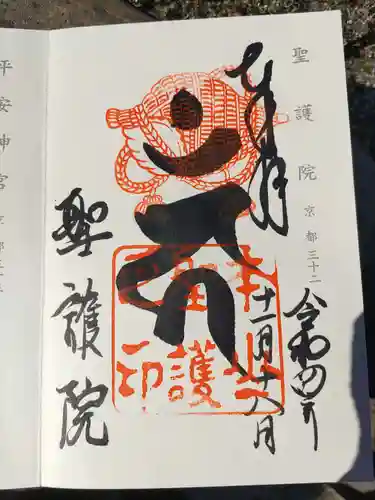 聖護院 京都三十二
奉拝
令和四年
十一月十八日
聖護院
平安神宮 京都三十三